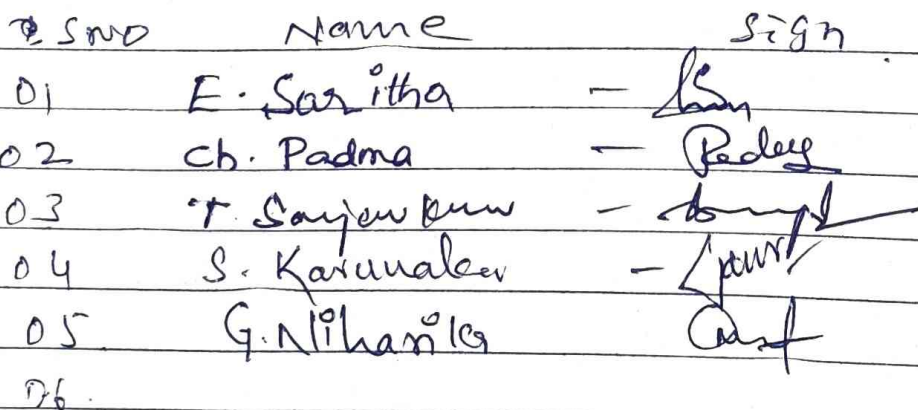 S NO Name Sign
01 E. Saritha -
02 Ch. Padma -
03 T. Sanjeev Kumar -
04 S. Karunaker -
05 G. Niharika
06.